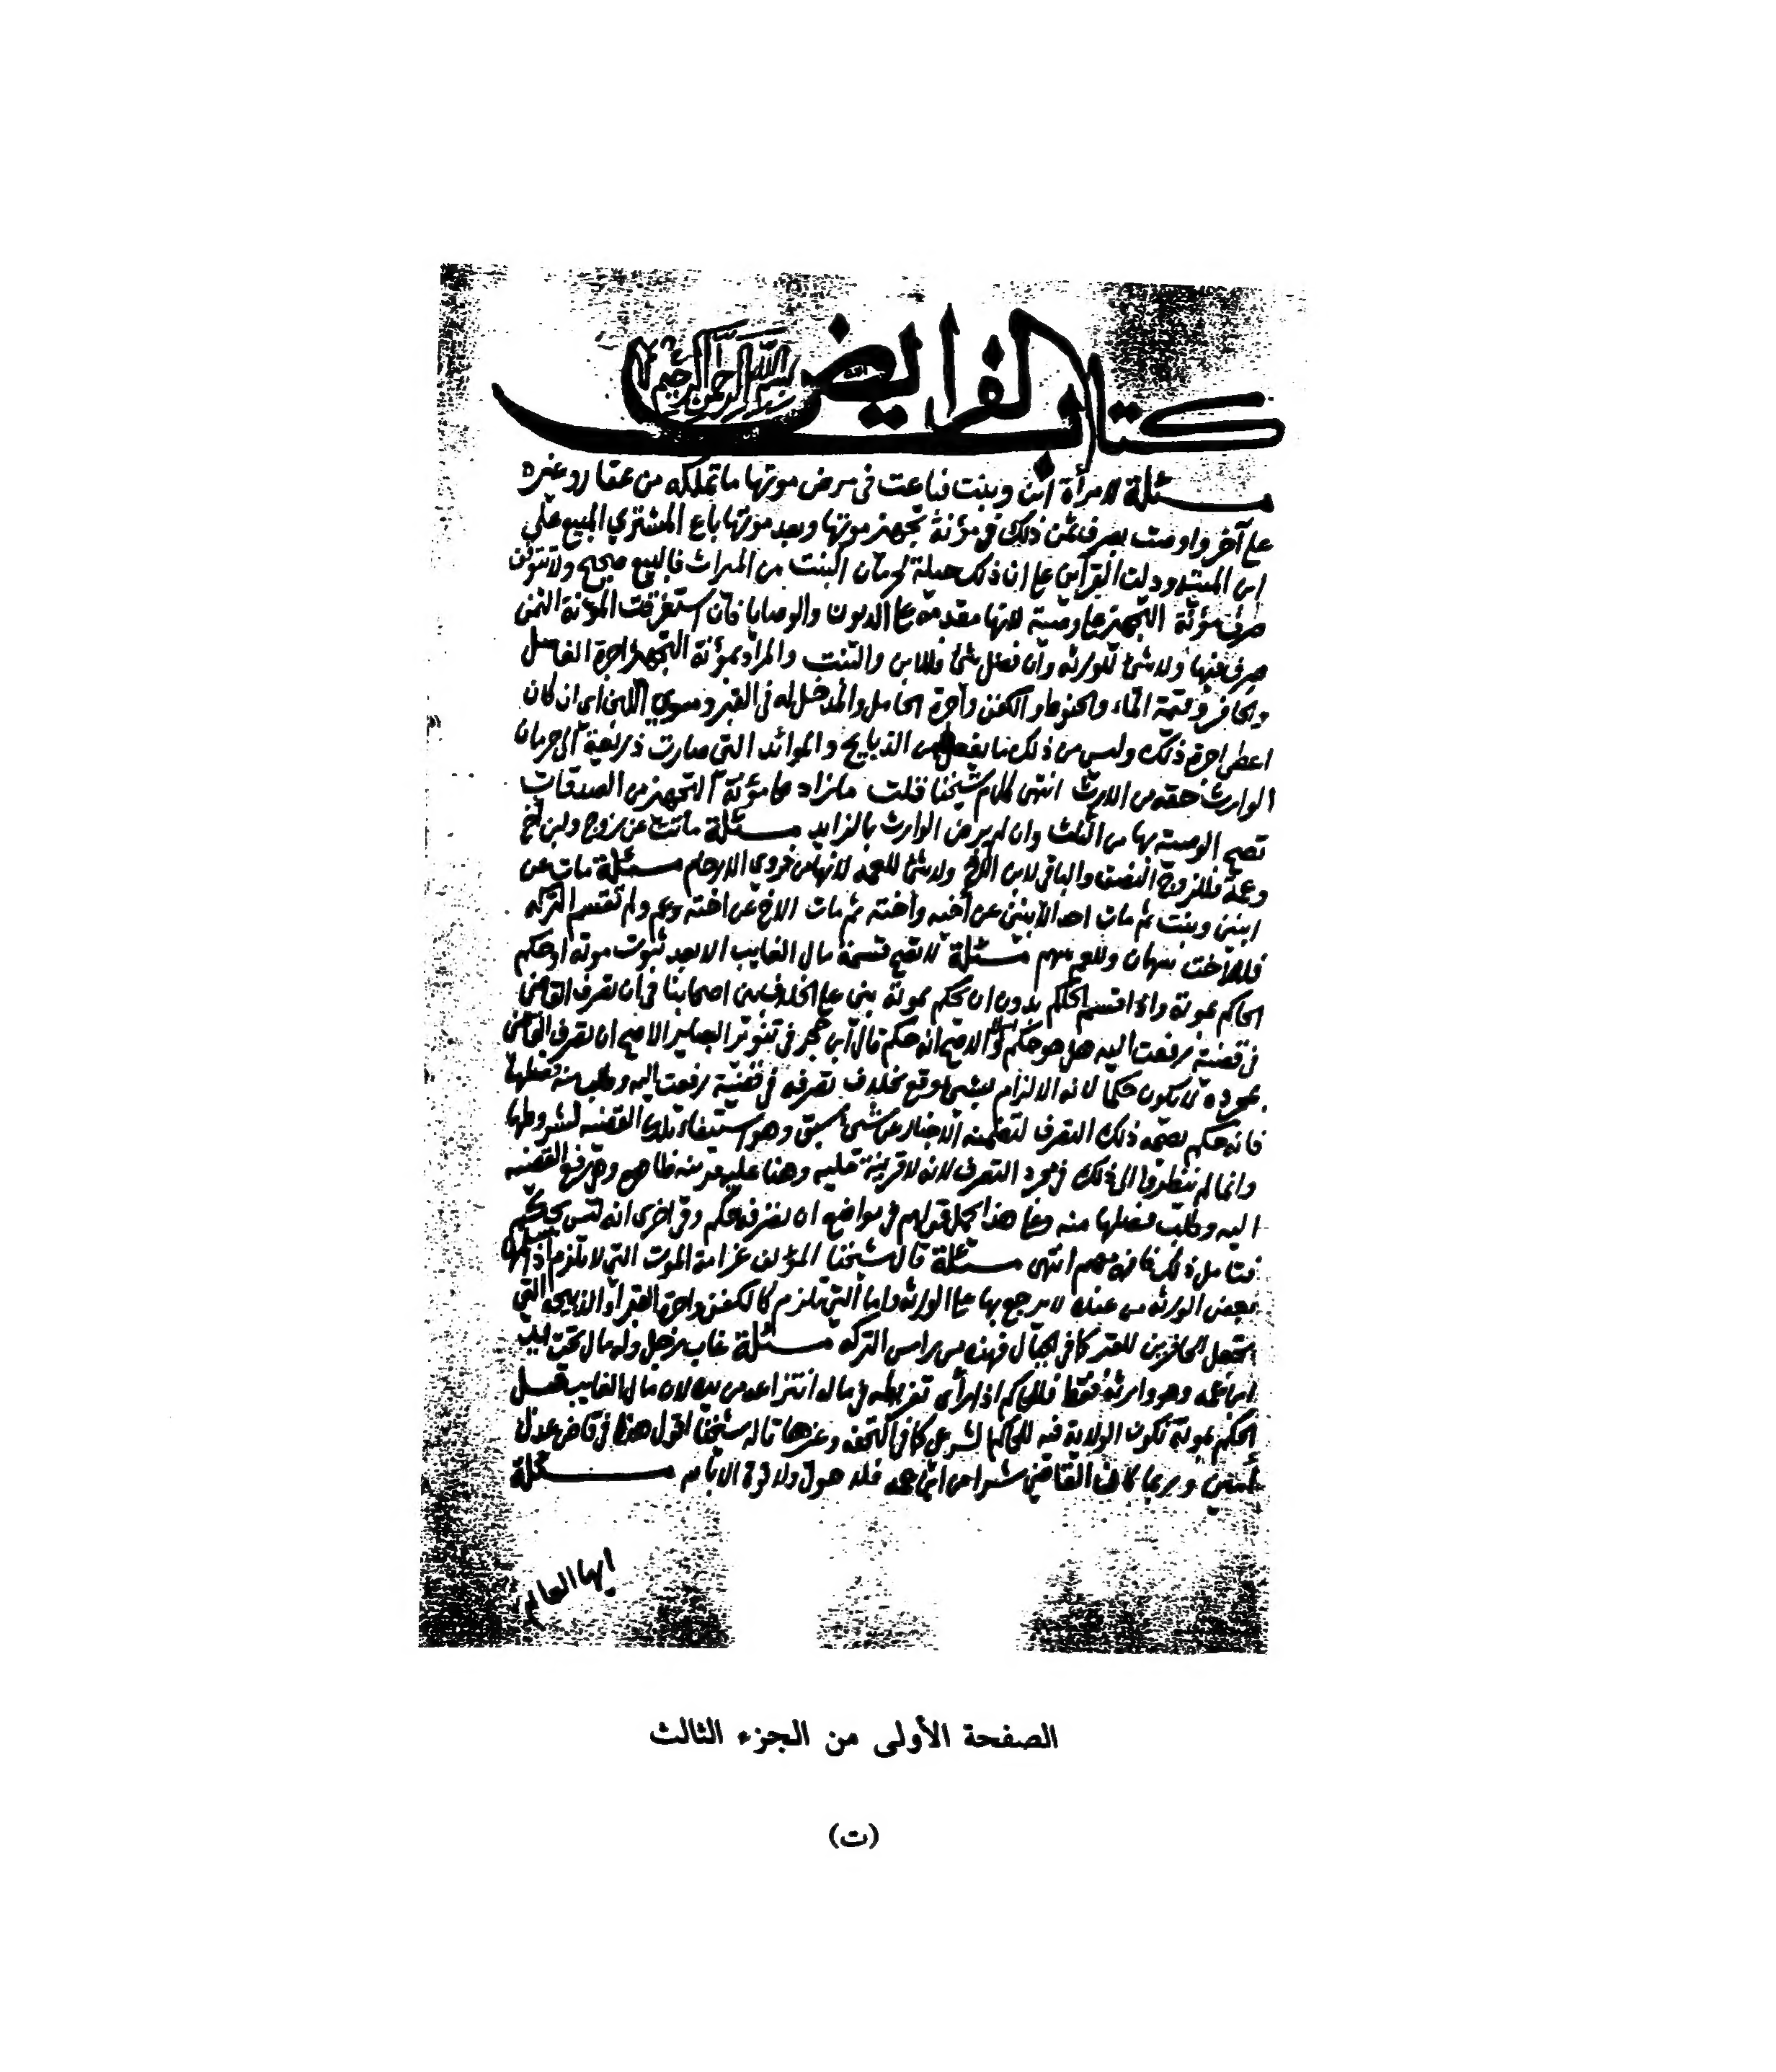 كتاب الفرايض
بسم الله الرحمن الرحيم
مسئلة لامرأة ابن وبنت فباعت في مرض موتها ما تملكه من عقار وغيره
على آخر واوصت بصرف ثمن ذلك في مؤنة تجهيز موتها وبعد موتها باع المشتري المبيع على
ابن الميتة ودلت القرآين على ان ذلك حيلة لحرمان البنت من الميراث فالبيع صحيح ولا تتوقف
صرف مؤنة التجهيز على وصية لانها مقدمة على الديون والوصايا فان استغرقت المؤنة الثمن
صرف فيها ولا شئ للورثه وان فضل شئ فللابن والبنت والمراد بمؤنة التجهيز اجرة الغاسل
والحافر وقيمة الماء والحنوط والكفن وأجرة الحامل والمدخل له في القبر ومسوي اللبن اي ان كان
اعطي اجرة ذلك وليس من ذلك ما يفعل من الذبايح والموائد التي صارت ذريعة الى حرمان
الوارث حقه من الارث انتهى كلام شيخنا قلت ما زاد على مؤنة التجهيز من الصدقات
تصح الوصية بها من الثلث وان لم يرض الوارث بالزايد مسئلة ماتت عن زوج وابن أخ
وعمة فللزوج النصف والباقي لابن الاخ ولا شئ للعمه لانها من ذوي الارحام مسئلة مات عن
ابنين وبنت ثم مات احد الابنين عن أخيه وأخته ثم مات الاخ عن اخته وعم ولم تقسم التركه
فللاخت سهمان وللعم سهم مسئلة لا تصح قسمة مال الغايب الا بعد ثبوت موته او حكم
الحاكم بموته واذا اقتسم الحاكم بدون ان يحكم بموته بني على الخلاف بين اصحابنا في أن تصرف القاضي
في قضية رفعت اليه هل هو حكم او لا والاصح انه حكم قال ابن حجر في تنوير البصاير الاصح ان تصرف القاضي
بمجرده لا يكون حكما لانه الالزام بشئ وقع بخلاف تصرفه في قضية رفعت اليه وطلب منه فصلها
فانه حكم بصحة ذلك التصرف لتضمنه الاخبار عن شئ سبق وهو استيفاء تلك القضيه لشروطها
وانما لم ينظروا الى ذلك في مجرد التصرف لانه لا قرينة عليه وهنا عليه قرينه ظاهره وهي رفع القضيه
اليه وطلب فصلها منه وعلى هذا يحمل قولهم في مواضع ان تصرفه حكم وفي اخرى انه ليس بحكم
فتامل ذلك فانه مهم انتهى مسئلة قال شيخنا المؤلف غرامة الموت التي لا تلزم اذا سلمها
بعض الورثه من عنده لا يرجع بها على الورثه واما التي تلزم كالكفن واجرة القبر او الذبيحه التي
تجعل للحافرين للقبر كما في الجبال فهذه من راس التركه مسئلة غاب رجل وله مال تحت يد
ابن عمه وهو وارثه فقط فللحاكم اذا رأى تفريطه في ماله انتزاعه من يده لان مال الغايب قبل
الحكم بموته تكون الولاية فيه للحاكم الشرعي كما في التحفه وغيرها قاله شيخنا اقول هذا في قاض عدل
أمين وربما كان القاضي شرا من ابن عمه فلا حول ولا قوة الا بالله مسئلة
ايها العالم
الصفحة الأولى من الجزء الثالث
(ت)